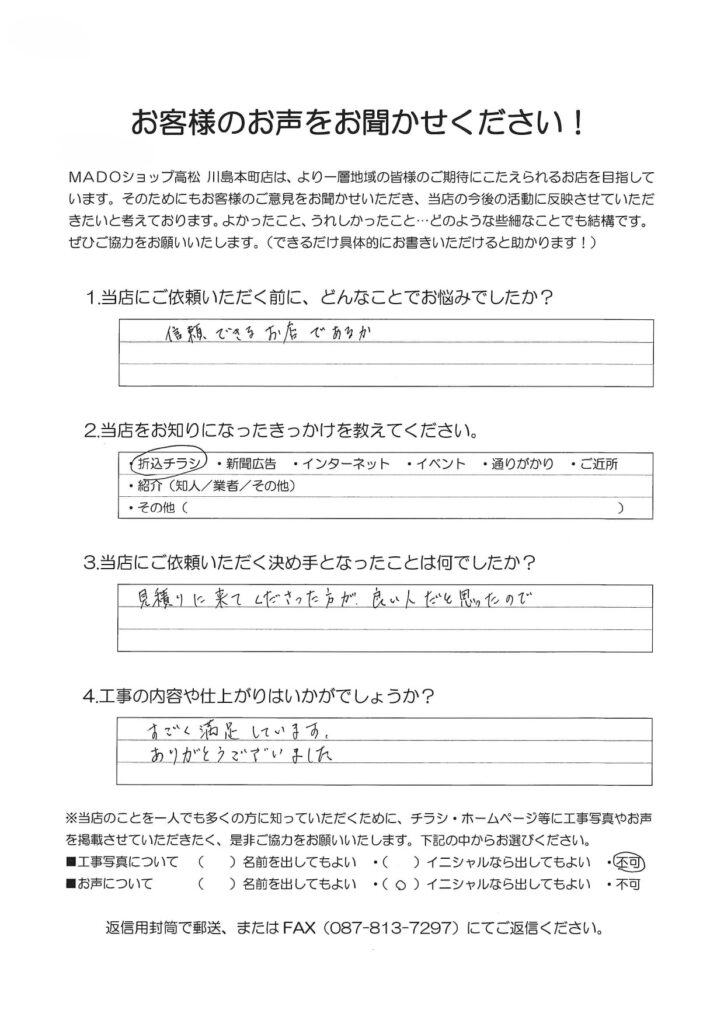 お客様のお声をお聞かせください！
MADOショップ高松 川島本町店は、より一層地域の皆様のご期待にこたえられるお店を目指して
います。そのためにもお客様のご意見をお聞かせいただき、当店の今後の活動に反映させていただ
きたいと考えております。よかったこと、うれしかったこと…どのような些細なことでも結構です。
ぜひご協力をお願いいたします。（できるだけ具体的にお書きいただけると助かります！）
1.当店にご依頼いただく前に、どんなことでお悩みでしたか？
信頼できるお店であるか
2.当店をお知りになったきっかけを教えてください。
・折込チラシ ・新聞広告 ・インターネット ・イベント ・通りがかり ・ご近所
・紹介（知人／業者／その他）
・その他（ ）
3.当店にご依頼いただく決め手となったことは何でしたか？
見積りに来てくださった方が、良い人だと思ったので
4.工事の内容や仕上がりはいかがでしょうか？
すごく満足しています。
ありがとうございました
※当店のことを一人でも多くの方に知っていただくために、チラシ・ホームページ等に工事写真やお声
を掲載させていただきたく、是非ご協力をお願いいたします。下記の中からお選びください。
■工事写真について （ ）名前を出してもよい ・（ ）イニシャルなら出してもよい ・不可
■お声について （ ）名前を出してもよい ・（ ○ ）イニシャルなら出してもよい ・不可
返信用封筒で郵送、またはFAX（087-813-7297）にてご返信ください。